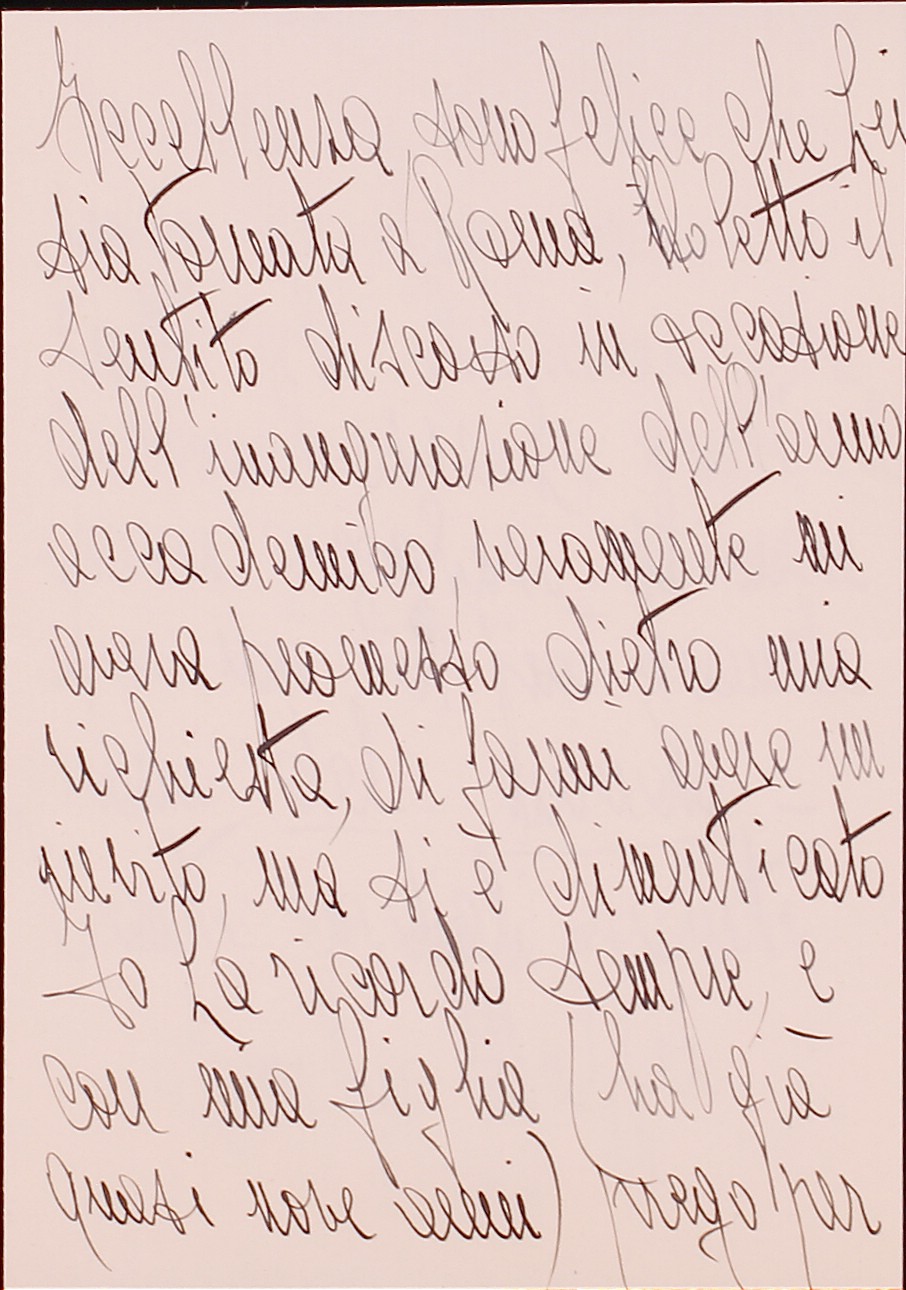 Eccellenza, sono felice che Lei
sia tornata a Roma, ho letto il
sentito discorso in occasione
dell'inaugurazione dell'anno
accademico, veramente mi
aveva promesso dietro mia
richiesta, di farmi avere un
invito, ma si è dimenticato
Io La ricordo sempre, e
con mia figlia (ha già
quasi nove anni) prego per